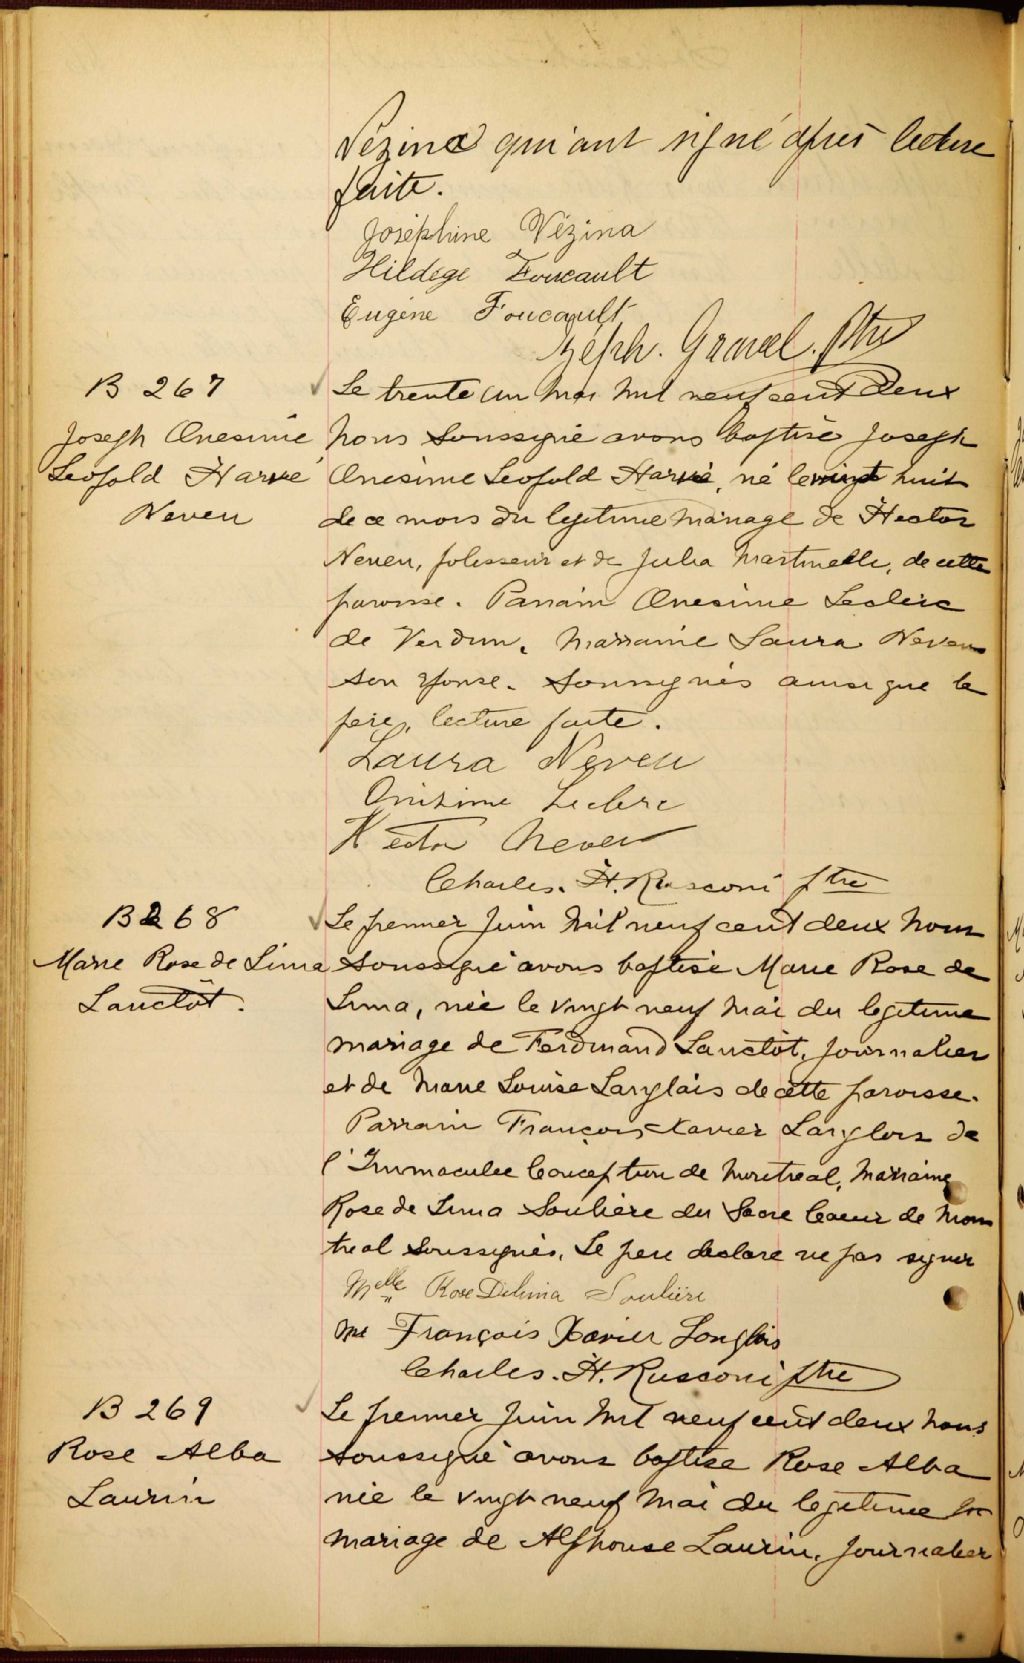 Vézina qui ont signé après lecture
faite.
Joséphine Vézina
Hildege Foucault
Eugène Foucault
Zéph. Gravel. Ptre
B 267
Joseph Onesime
Leopold Harvé
Neveu
Le trente un mai mil neuf cent deux
nous soussigné avons baptisé Joseph
Onesime Leopold Harvé, né le vingt huit
de ce mois du legitime mariage de Hector
Neveu, polisseur et de Julia Martinelle, de cette
paroisse. Parrain Onesime Leclerc
de Verdun, Marraine Laura Neveu
son épouse. Soussignés ainsi que le
père, lecture faite.
Laura Neveu
Onizime Leclerc
Hector Neveu
Charles. H. Rusconi ptre
B 268
Marie Rose de Lima
Lanctôt.
Le premier Juin mil neuf cent deux nous
soussigné avons baptisé Marie Rose de
Lima, née le vingt neuf mai du legitime
mariage de Ferdinand Lanctôt, journalier
et de Marie Louise Langlais de cette paroisse.
Parrain François Xavier Langlois de
l'Immaculée Conception de Montreal, Marraine
Rose de Lima Soulière du Sacre Coeur de Mon
treal soussignés. Le pere declare ne pas signer
Melle Rose Delima Soulière
Mr François Xavier Longlois
Charles. H. Rusconi ptre
B 269
Rose Alba
Laurin
Le premier Juin mil neuf cent deux nous
soussigné avons baptisé Rose Alba
née le vingt neuf mai du legitime
mariage de Alphonse Laurin, journalier